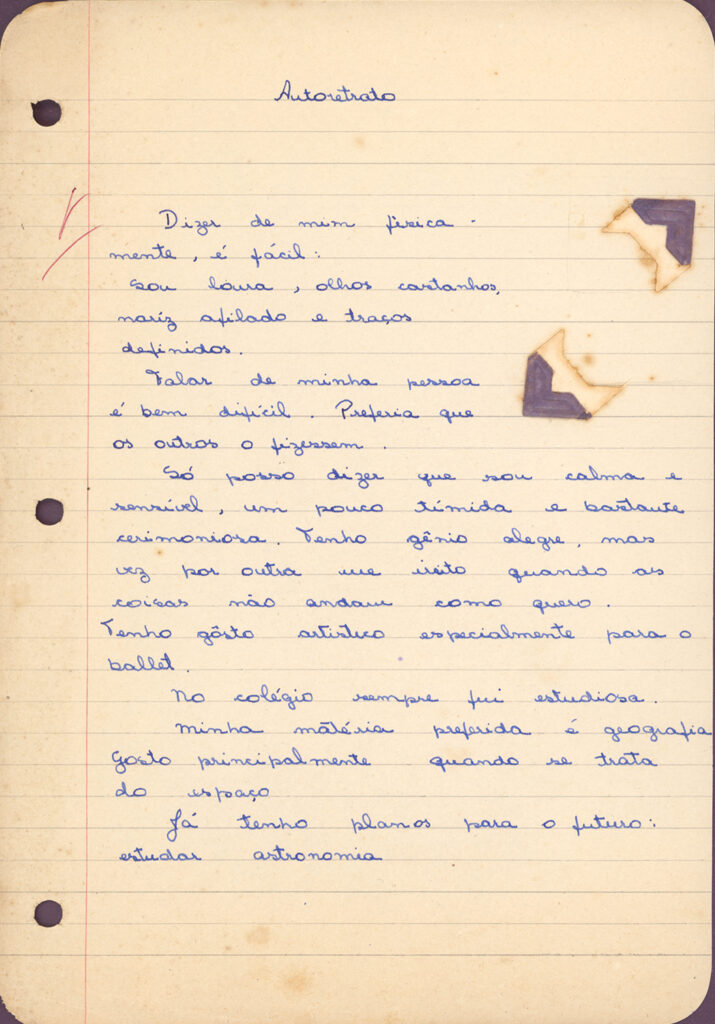 Autoretrato
Dizer de mim fisica-
mente, é fácil:
Sou loura, olhos castanhos,
naríz afilado e traços
definidos.
Falar de minha pessoa
é bem difícil. Preferia que
os outros o fizessem.
Só posso dizer que sou calma e
sensível, um pouco tímida e bastante
cerimoniosa. Tenho gênio alegre, mas
vez por outra me irrito quando as
coisas não andam como quero.
Tenho gôsto artístico especialmente para o
ballet.
No colégio sempre fui estudiosa.
Minha matéria preferida é geografia
Gosto principalmente quando se trata
do espaço
Já tenho planos para o futuro:
estudar astronomia